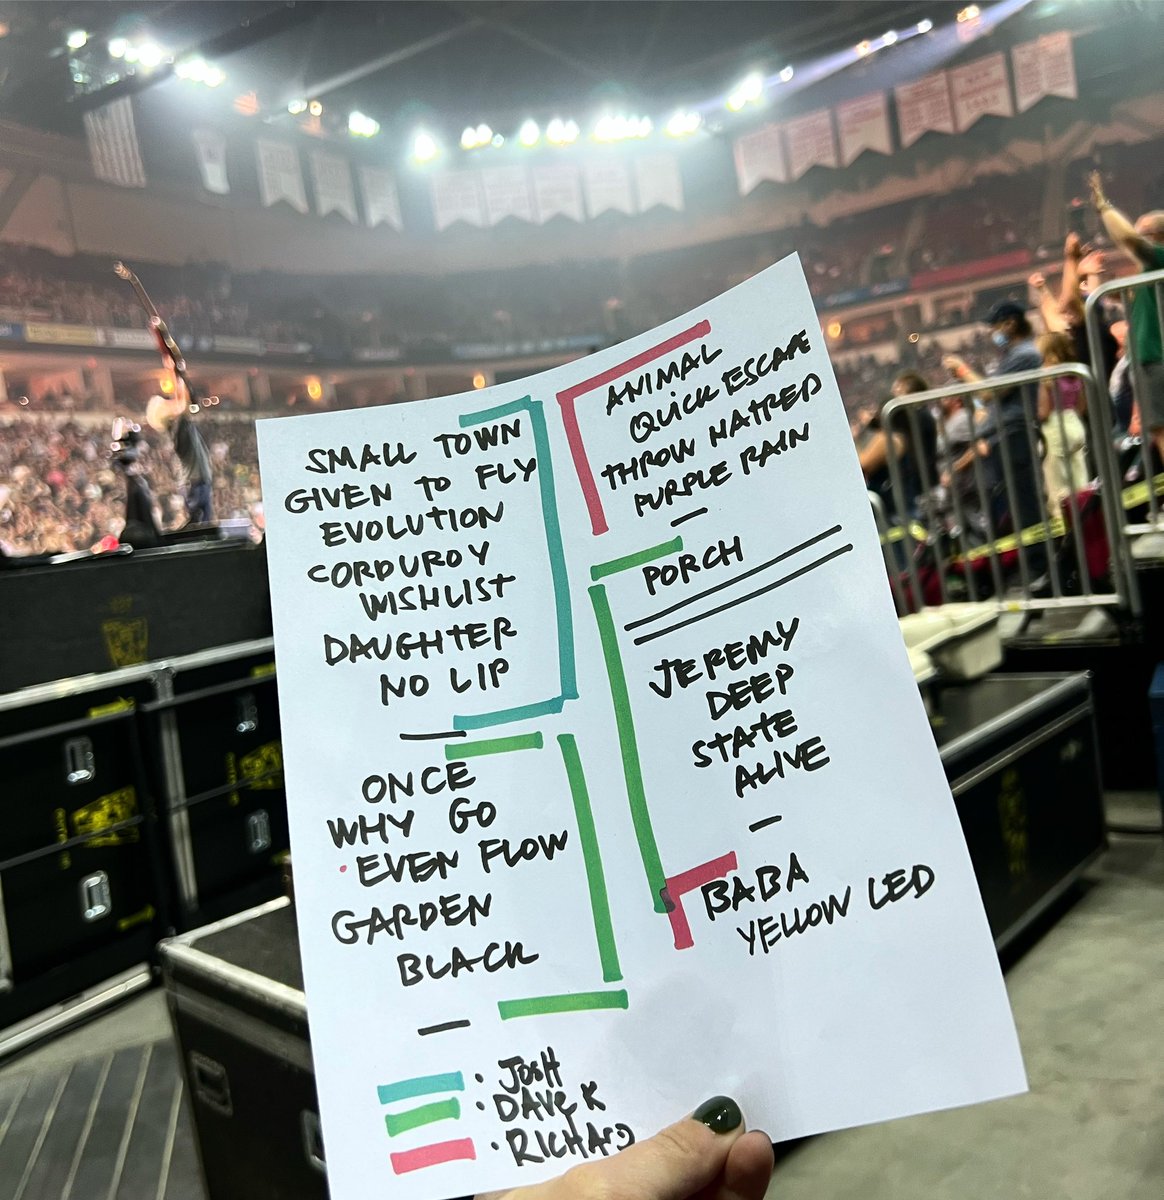 SMALL TOWN
GIVEN TO FLY
EVOLUTION
CORDUROY
WISHLIST
DAUGHTER
NO LIP
—
ONCE
WHY GO
• EVEN FLOW
GARDEN
BLACK
—
• JOSH
• DAVE K
• RICHARD
ANIMAL
QUICK ESCAPE
THROW HATRED
PURPLE RAIN
—
PORCH
JEREMY
DEEP
STATE
ALIVE
—
BABA
YELLOW LED